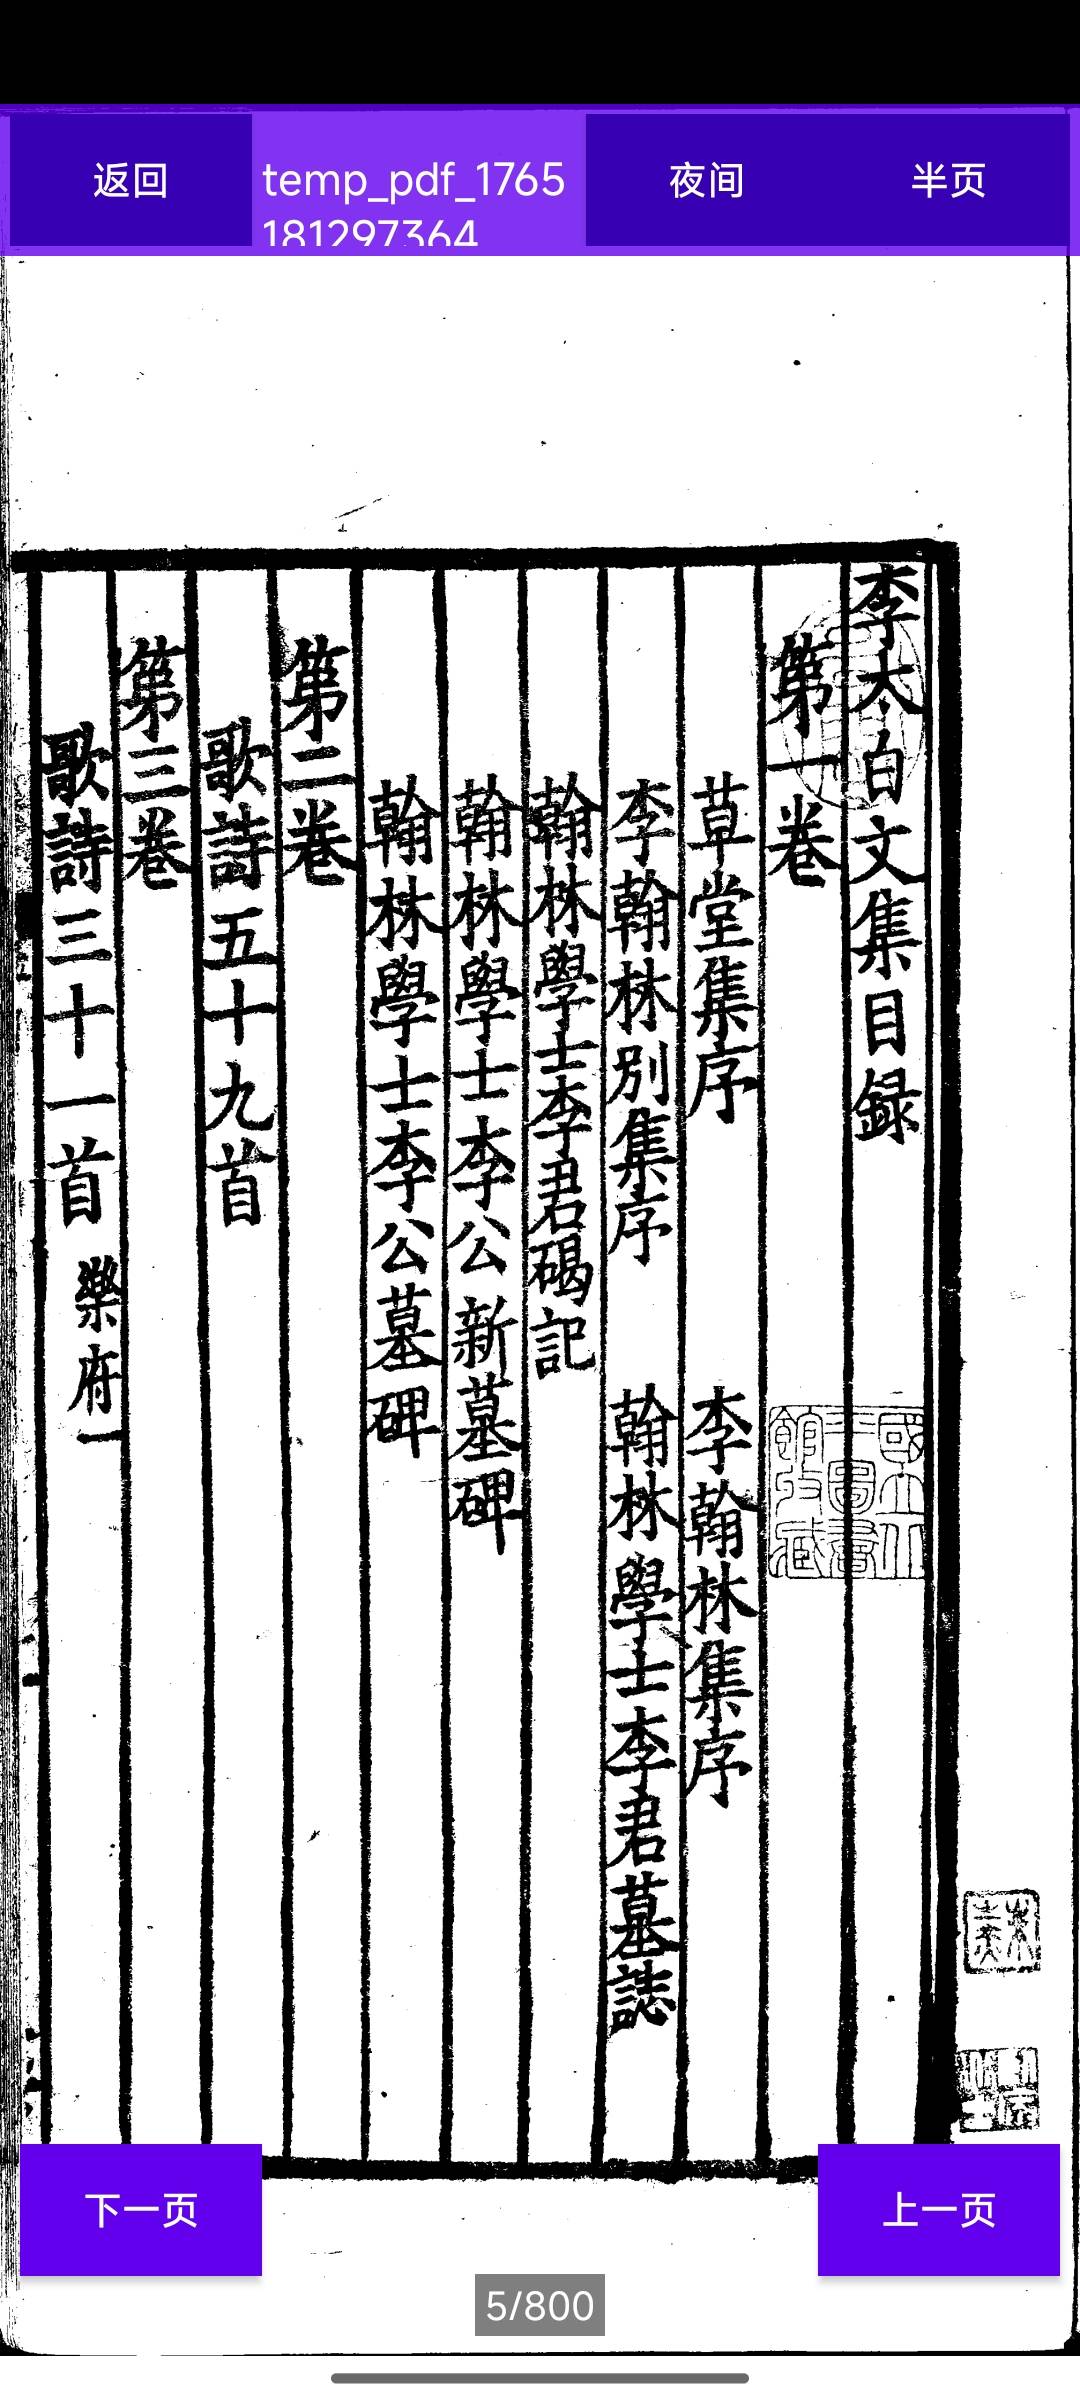 返回
temp_pdf_1765
181297364
夜间
半页
李太白文集目録
第一卷
草堂集序 李翰林集序
李翰林別集序 翰林學士李君墓誌
翰林學士李君碣記
翰林學士李公新墓碑
翰林學士李公墓碑
第二卷
歌詩五十九首
第三卷
歌詩三十一首 樂府一
國立北
平圖書
館收藏
下一页
上一页
5/800